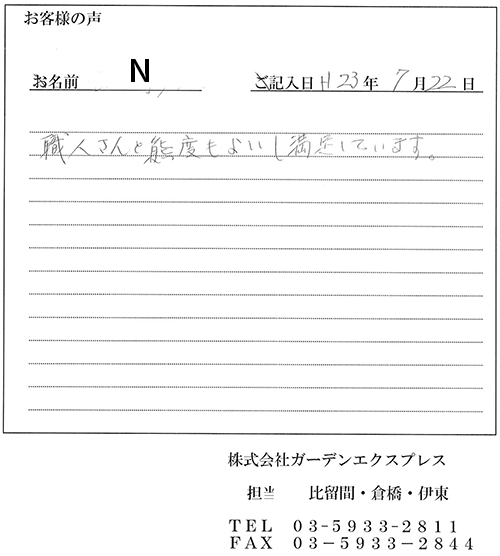 お客様の声
お名前 N ご記入日 H23年 7月22日
職人さんと態度もよいし満足しています。
株式会社ガーデンエクスプレス
担当 比留間・倉橋・伊東
TEL 03-5933-2811
FAX 03-5933-2844